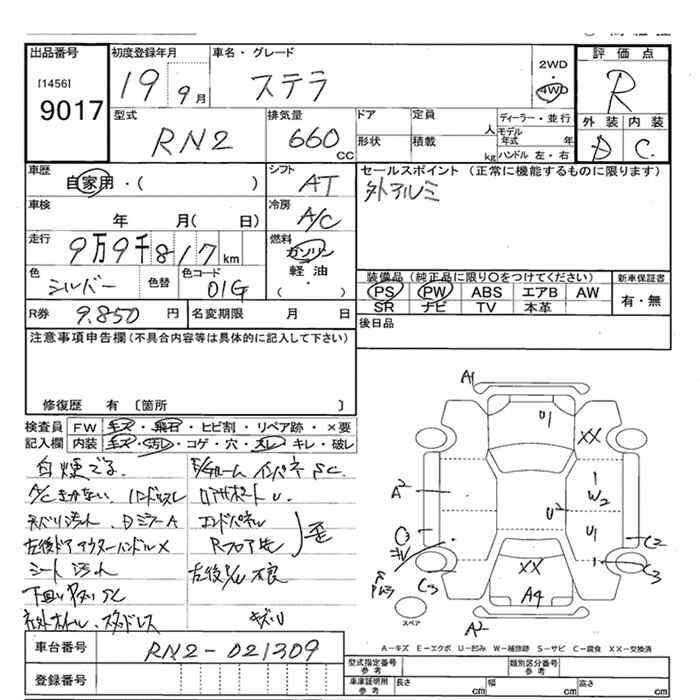 出品番号 初度登録年月 車名・グレード 評価点
[1456] 19 9月 ステラ 2WD R
9017 4WD
型式 排気量 ドア 定員 人 ディーラー・並行 外装 内装
RN2 660 CC 形状 積載 kg モデル年式 年 D C
ハンドル 左・右
車歴 シフト セールスポイント (正常に機能するものに限ります)
自家用・( ) AT 外アルミ
車検 冷房
年 月( 日) A/C
走行 燃料
9万9千817 km ガソリン
色 色替 色コード 軽油 装備品 (純正品に限り○をつけてください) 新車保証書
シルバー 01G ・( ) PS PW ABS エアB AW 有・無
SR ナビ TV 本革
R券 9,850 円 名変期限 月 日 後日品
注意事項申告欄(不具合内容等は具体的に記入して下さい)
修復歴 有 〔箇所 〕
検査員 FW キズ・飛石・ヒビ割・リペア跡・×要
記入欄 内装 キズ・汚れ・コゲ・穴・スレ・キレ・破レ
A/Cきかない ハンドルスレ
Dミラー A
エンドパネル
左後ドアアウターハンドル×
Rフロア 歪
シート 汚れ 左後 不良
スタッドレス キズU
A1
U1
XX
A2
1
W2
U2
U1
C2
1
C3
C3
XX
A4
A2
スペア
A-キズ E-エクボ U-凹み W-補修跡 S-サビ C-腐食 XX-交換済
車台番号 RN2-021309
型式指定番号 参考 類別区分番号 参考
登録番号 車庫証明用 参考 長さ cm 幅 cm 高さ cm